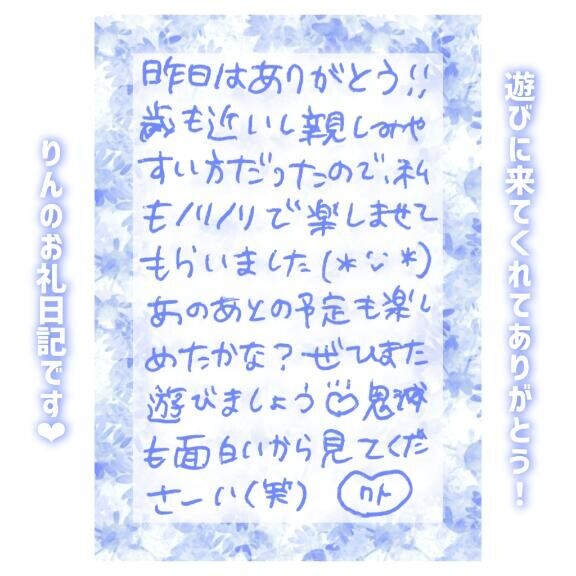 遊びに来てくれてありがとう！
昨日はありがとう!!
歳も近いし親しみや
すい方だったので、私
もノリノリで楽しませて
もらいました(*ᵕᵕ*)
あのあとの予定も楽し
めたかな？ぜひまた
遊びましょう 鬼滅
も面白いから見てくだ
さーい(笑) りん
りんのお礼日記です❤